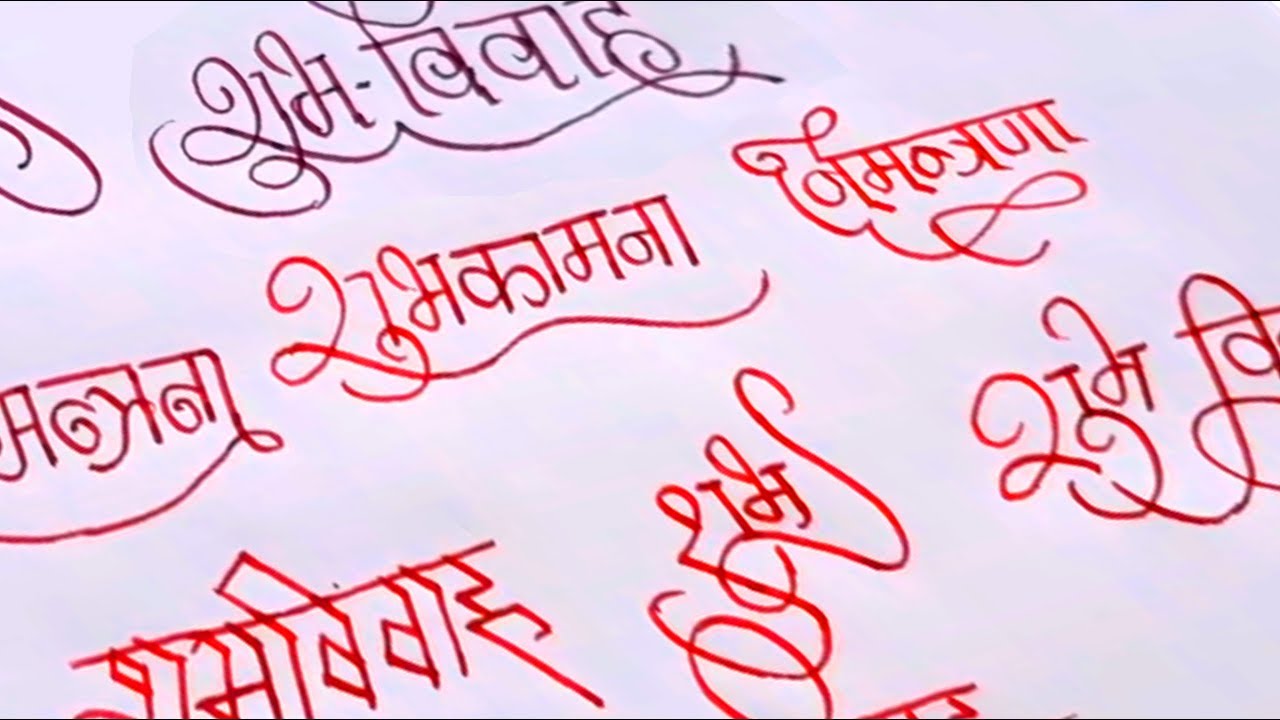 शुभ-विवाह
निमन्त्रण
शुभकामना
मन्त्रना
शुभ वि
शुभ
शुभविवाह